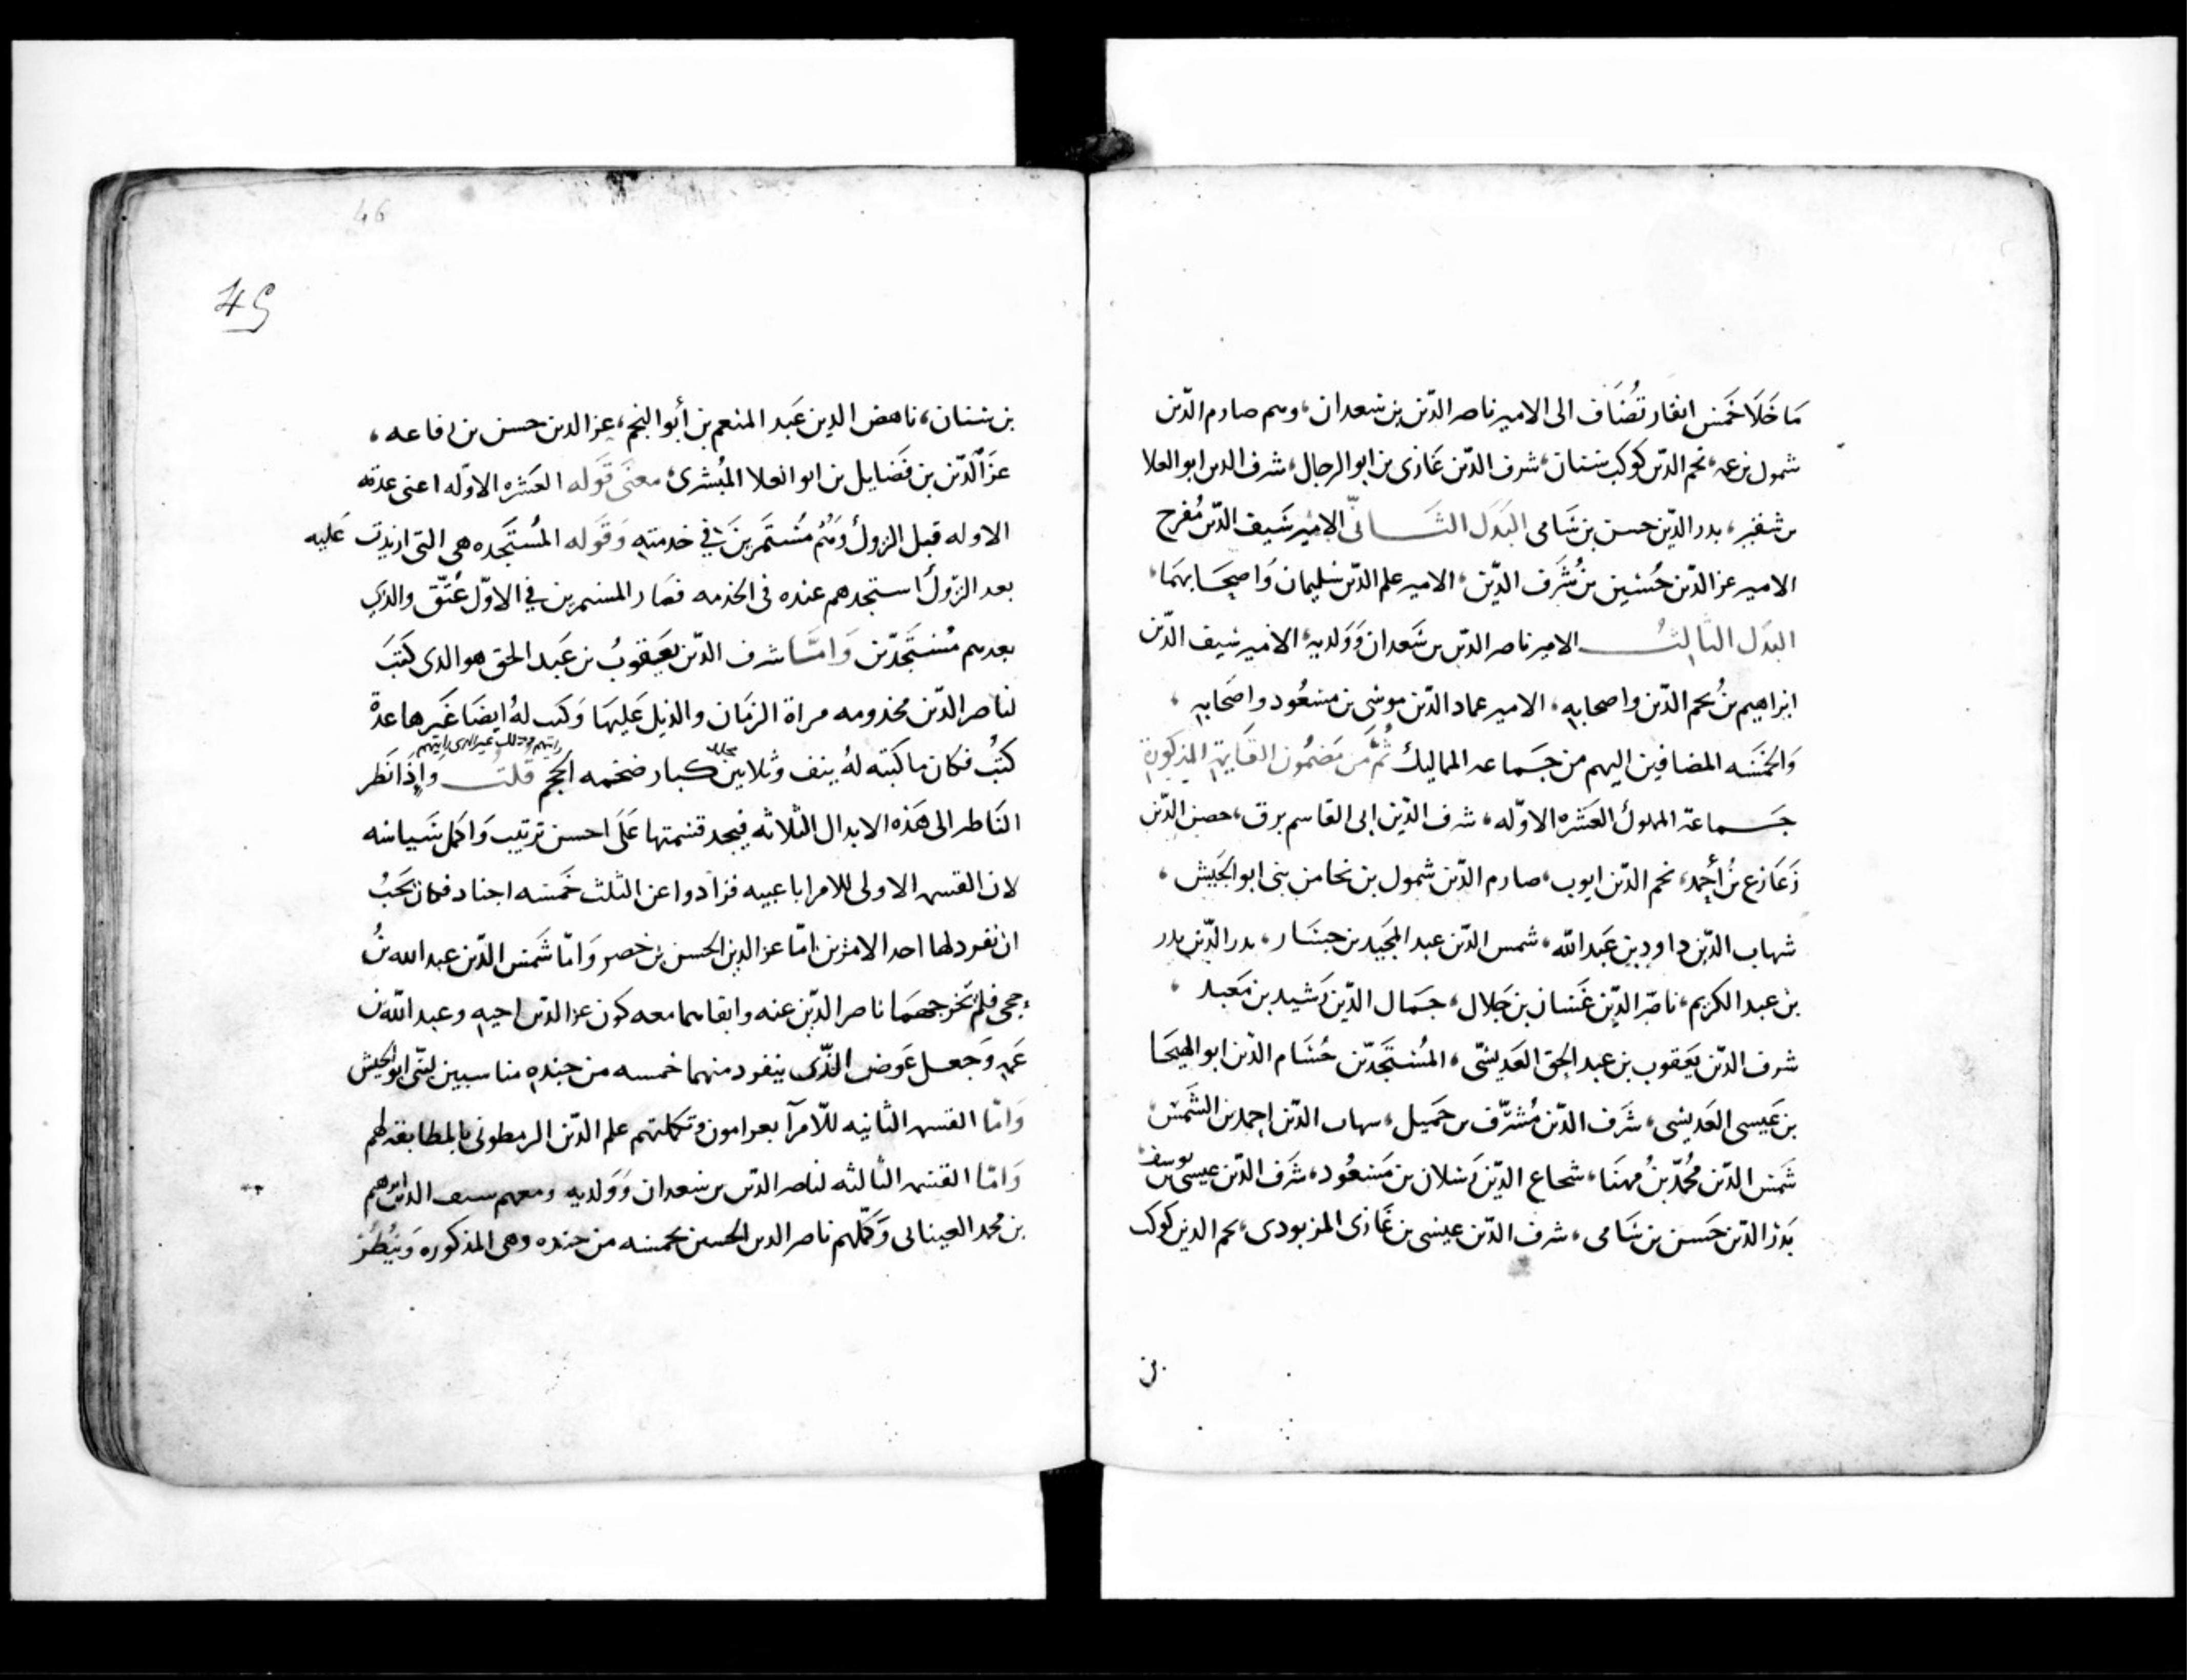 ما خلا خمس انفار تضاف الى الامير ناصر الدين بن سعدان، وهم صارم الدين
شمول بن عه، نجم الدين كوكب بن سنان، شرف الدين غازي بن ابو الرجال، شرف الدين ابو العلا
بدر الدين حسن بن سامى البدل الثانى الامير سيف الدين مفرج
الامير عز الدين حسين بن شرف الدين، الامير علم الدين سليمان واصحابهما،
البدل الثالث الامير ناصر الدين بن سعدان وولديه، الامير سيف الدين
ابراهيم بن نجم الدين واصحابه، الامير عماد الدين موسى بن مسعود واصحابه،
والخمسه المضافين اليهم من جماعه المماليك ثم من مضمون القايمة المذكورة
جماعة المملوك العشره الاوله، شرف الدين ابى القاسم برق، حصن الدين
زعازع بن أحمد، نجم الدين ايوب، صارم الدين شمول بن نحا من بنى ابو الجيش،
شهاب الدين داود بن عبد الله، شمس الدين عبد المجيد بن جسار، بدر الدين بدر
بن عبد الكريم، ناصر الدين غسان بن جلال، جمال الدين رشيد بن معبد،
شرف الدين يعقوب بن عبد الحق العديسى، المستجدين حسام الدين ابو الهيجا
بن عيسى العديسى، شرف الدين مشرف بن حميل، شهاب الدين احمد بن الشمس،
شمس الدين محمد بن مهنا، شجاع الدين رسلان بن مسعود، شرف الدين عيسى بن يوسف
بدر الدين حسن بن سامى، شرف الدين عيسى بن غازى المزبودى، نجم الدين كوكب
بن
46
45
بن سنان، ناهض الدين عبد المنعم بن أبو النجم، عز الدين حسن بن رفاعه،
عز الدين بن فضايل بن ابو العلا المبشرى، معنى قوله العشره الاوله اعنى عدته
الاوله قبل الزول وهم مستمرين في خدمته وقوله المستجده هى التى ازيدت عليه
بعد الزول استجدهم عنده فى الخدمه فصار المستمرين في الاول عتق والذي
بعدهم مستجدين واما شرف الدين يعقوب بن عبد الحق هو الذى كتب
لناصر الدين مخدومه مراة الزمان والذيل عليها وكتب له ايضا غيرها عدة
كتب فكان ما كتبه له ينف وثلاثين مجلد كبار ضخمه الحجم قلت واذا نظر
الناظر الى هذه الابدال الثلاثه فيجد قسمتها على احسن ترتيب واكمل سياسه
لان القسمه الاولى للامرا باعبيه فزادوا عن الثلث خمسه اجناد فكان يجب
ان نفرد لها احد الامرين اما عز الدين الحسن بن خضر واما شمس الدين عبد الله بن
حجى فلم نخرجهما ناصر الدين عنه وابقاهما معه كون عز الدين اخيه وعبد الله بن
عمه وجعل عوض الذى ينفرد منهما خمسه من جنده مناسبين لبنى ابو الجيش
واما القسمه الثانيه للامرآ بعرامون وتكملتهم علم الدين الرمطونى بالمطابقه لهم
واما القسمه الثالثه لناصر الدين بن سعدان وولديه ومعهم سيف الدين ابراهيم
بن محمد العينابى وكملهم ناصر الدين الحسين بخمسه من جنده وهى المذكوره وينظر